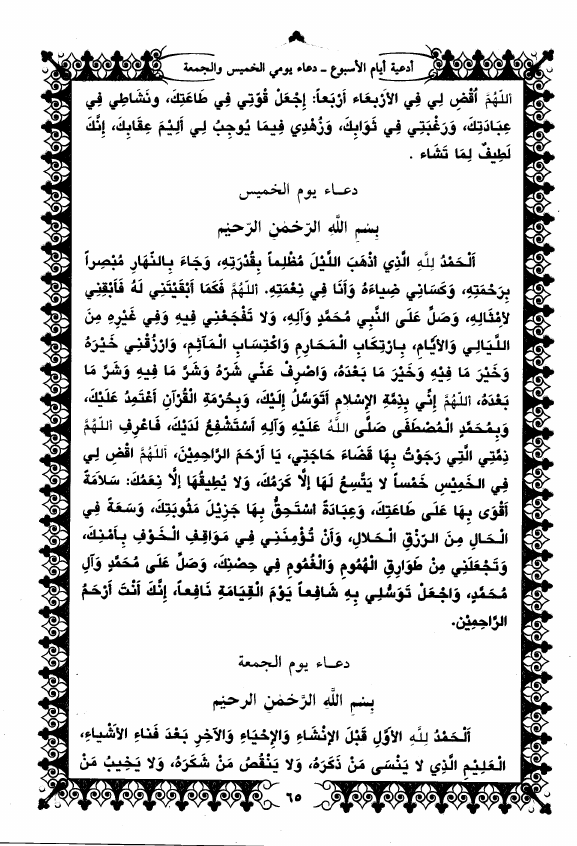 أدعية أيام الأسبوع ـ دعاء يومي الخميس والجمعة
اَللّهُمَّ أقْضِ لي في الأرْبعَاءِ أرْبَعاً: إجْعَلْ قُوَّتِي فِي طَاعَتِكَ، ونَشَاطِي فِي
عِبَادَتِكَ، وَرَغْبَتِي فِي ثَوَابِكَ، وَزُهْدِي فِيمَا يُوجِبُ لِي اَلِيْمَ عِقَابِكَ، إنَّكَ
لَطِيفٌ لِمَا تَشَاء .
دعــاء يوم الخميس
بِسْمِ اللَّهِ الرَّحْمٰنِ الرَّحِيْمِ
اَلْحَمْدُ لِلَّهِ الَّذِي اذْهَبَ اللَّيْلَ مُظْلِماً بِقُدْرَتِهِ، وَجَاءَ بِالنَّهَارِ مُبْصِراً
بِرَحْمَتِهِ، وَكَسَانِي ضِيَاءَهُ وَأنَا فِي نِعْمَتِهِ. اَللّهُمَّ فَكَمَا أبْقَيْتَنِي لَهُ فَأبْقِنِي
لأمْثَالِهِ، وَصَلِّ عَلَى النَّبِي مُحَمَّدٍ وَآلِهِ، وَلا تَفْجَعْنِي فِيهِ وَفِي غَيْرِهِ مِنَ
اللَّيَالِي وَالأيَّامِ، بِارْتِكَابِ الْمَحَارِمِ وَاكْتِسَابِ الْمَآثِمِ، وَارْزُقْنِي خَيْرَهُ
وَخَيْرَ مَا فِيْهِ وَخَيْرَ مَا بَعْدَهُ، وَاصْرِفْ عَنِّي شَرَّهُ وَشَرَّ مَا فِيهِ وَشَرَّ مَا
بَعْدَهُ، اَللّهُمَّ إنِّي بِذِمَّةِ الإسْلامِ أتَوَسَّلُ إلَيْكَ، وَبِحُرْمَةِ الْقُرْآنِ أعْتَمِدُ عَلَيْكَ،
وَبِمُحَمَّدٍ الْمُصْطَفَى صَلَّى اللَّهُ عَلَيْهِ وَآلِهِ أسْتَشْفِعُ لَدَيْكَ، فَاعْرِفِ اَللّهُمَّ
ذِمَّتِي الَّتِي رَجَوْتُ بِهَا قَضَاءَ حَاجَتِي، يَا أرْحَمَ الرَّاحِمِيْنَ، اَللّهُمَّ اقْضِ لِي
فِي الخَمِيْسِ خَمْساً لا يَتَّسِعُ لَهَا إلَّا كَرَمُكَ، وَلا يُطِيقُهَا إلَّا نِعَمُكَ: سَلامَةً
أقْوَى بِهَا عَلَى طَاعَتِكَ، وَعِبَادَةً اسْتَحِقُّ بِهَا جَزِيْلَ مَثُوبَتِكَ، وَسَعَةً فِي
الْحَالِ مِنَ الرِّزْقِ الْحَلالِ، وَأنْ تُؤْمِنَنِي فِي مَوَاقِفِ الْخَوْفِ بِأمْنِكَ،
وَتَجْعَلَنِي مِنْ طَوَارِقِ الْهُمُومِ وَالْغُمُومِ فِي حِصْنِكَ، وَصَلِّ عَلَى مُحَمَّدٍ وَآلِ
مُحَمَّدٍ، وَاجْعَلْ تَوَسُّلِي بِهِ شَافِعاً يَوْمَ الْقِيَامَةِ نَافِعاً، إنَّكَ أنْتَ أرْحَمُ
الرَّاحِمِيْنَ.
دعــاء يوم الجمعة
بِسْمِ اللَّهِ الرَّحْمٰنِ الرحيْمِ
اَلْحَمْدُ لِلَّهِ الأوَّلِ قَبْلَ الإنْشَاءِ وَالإحْيَاءِ وَالآخِرِ بَعْدَ فَنَاءِ الأشْيَاءِ،
الْعَلِيْمِ الَّذِي لا يَنْسَى مَنْ ذَكَرَهُ، وَلا يَنْقُصُ مَنْ شَكَرَهُ، وَلا يَخِيبُ مَنْ
٦٥